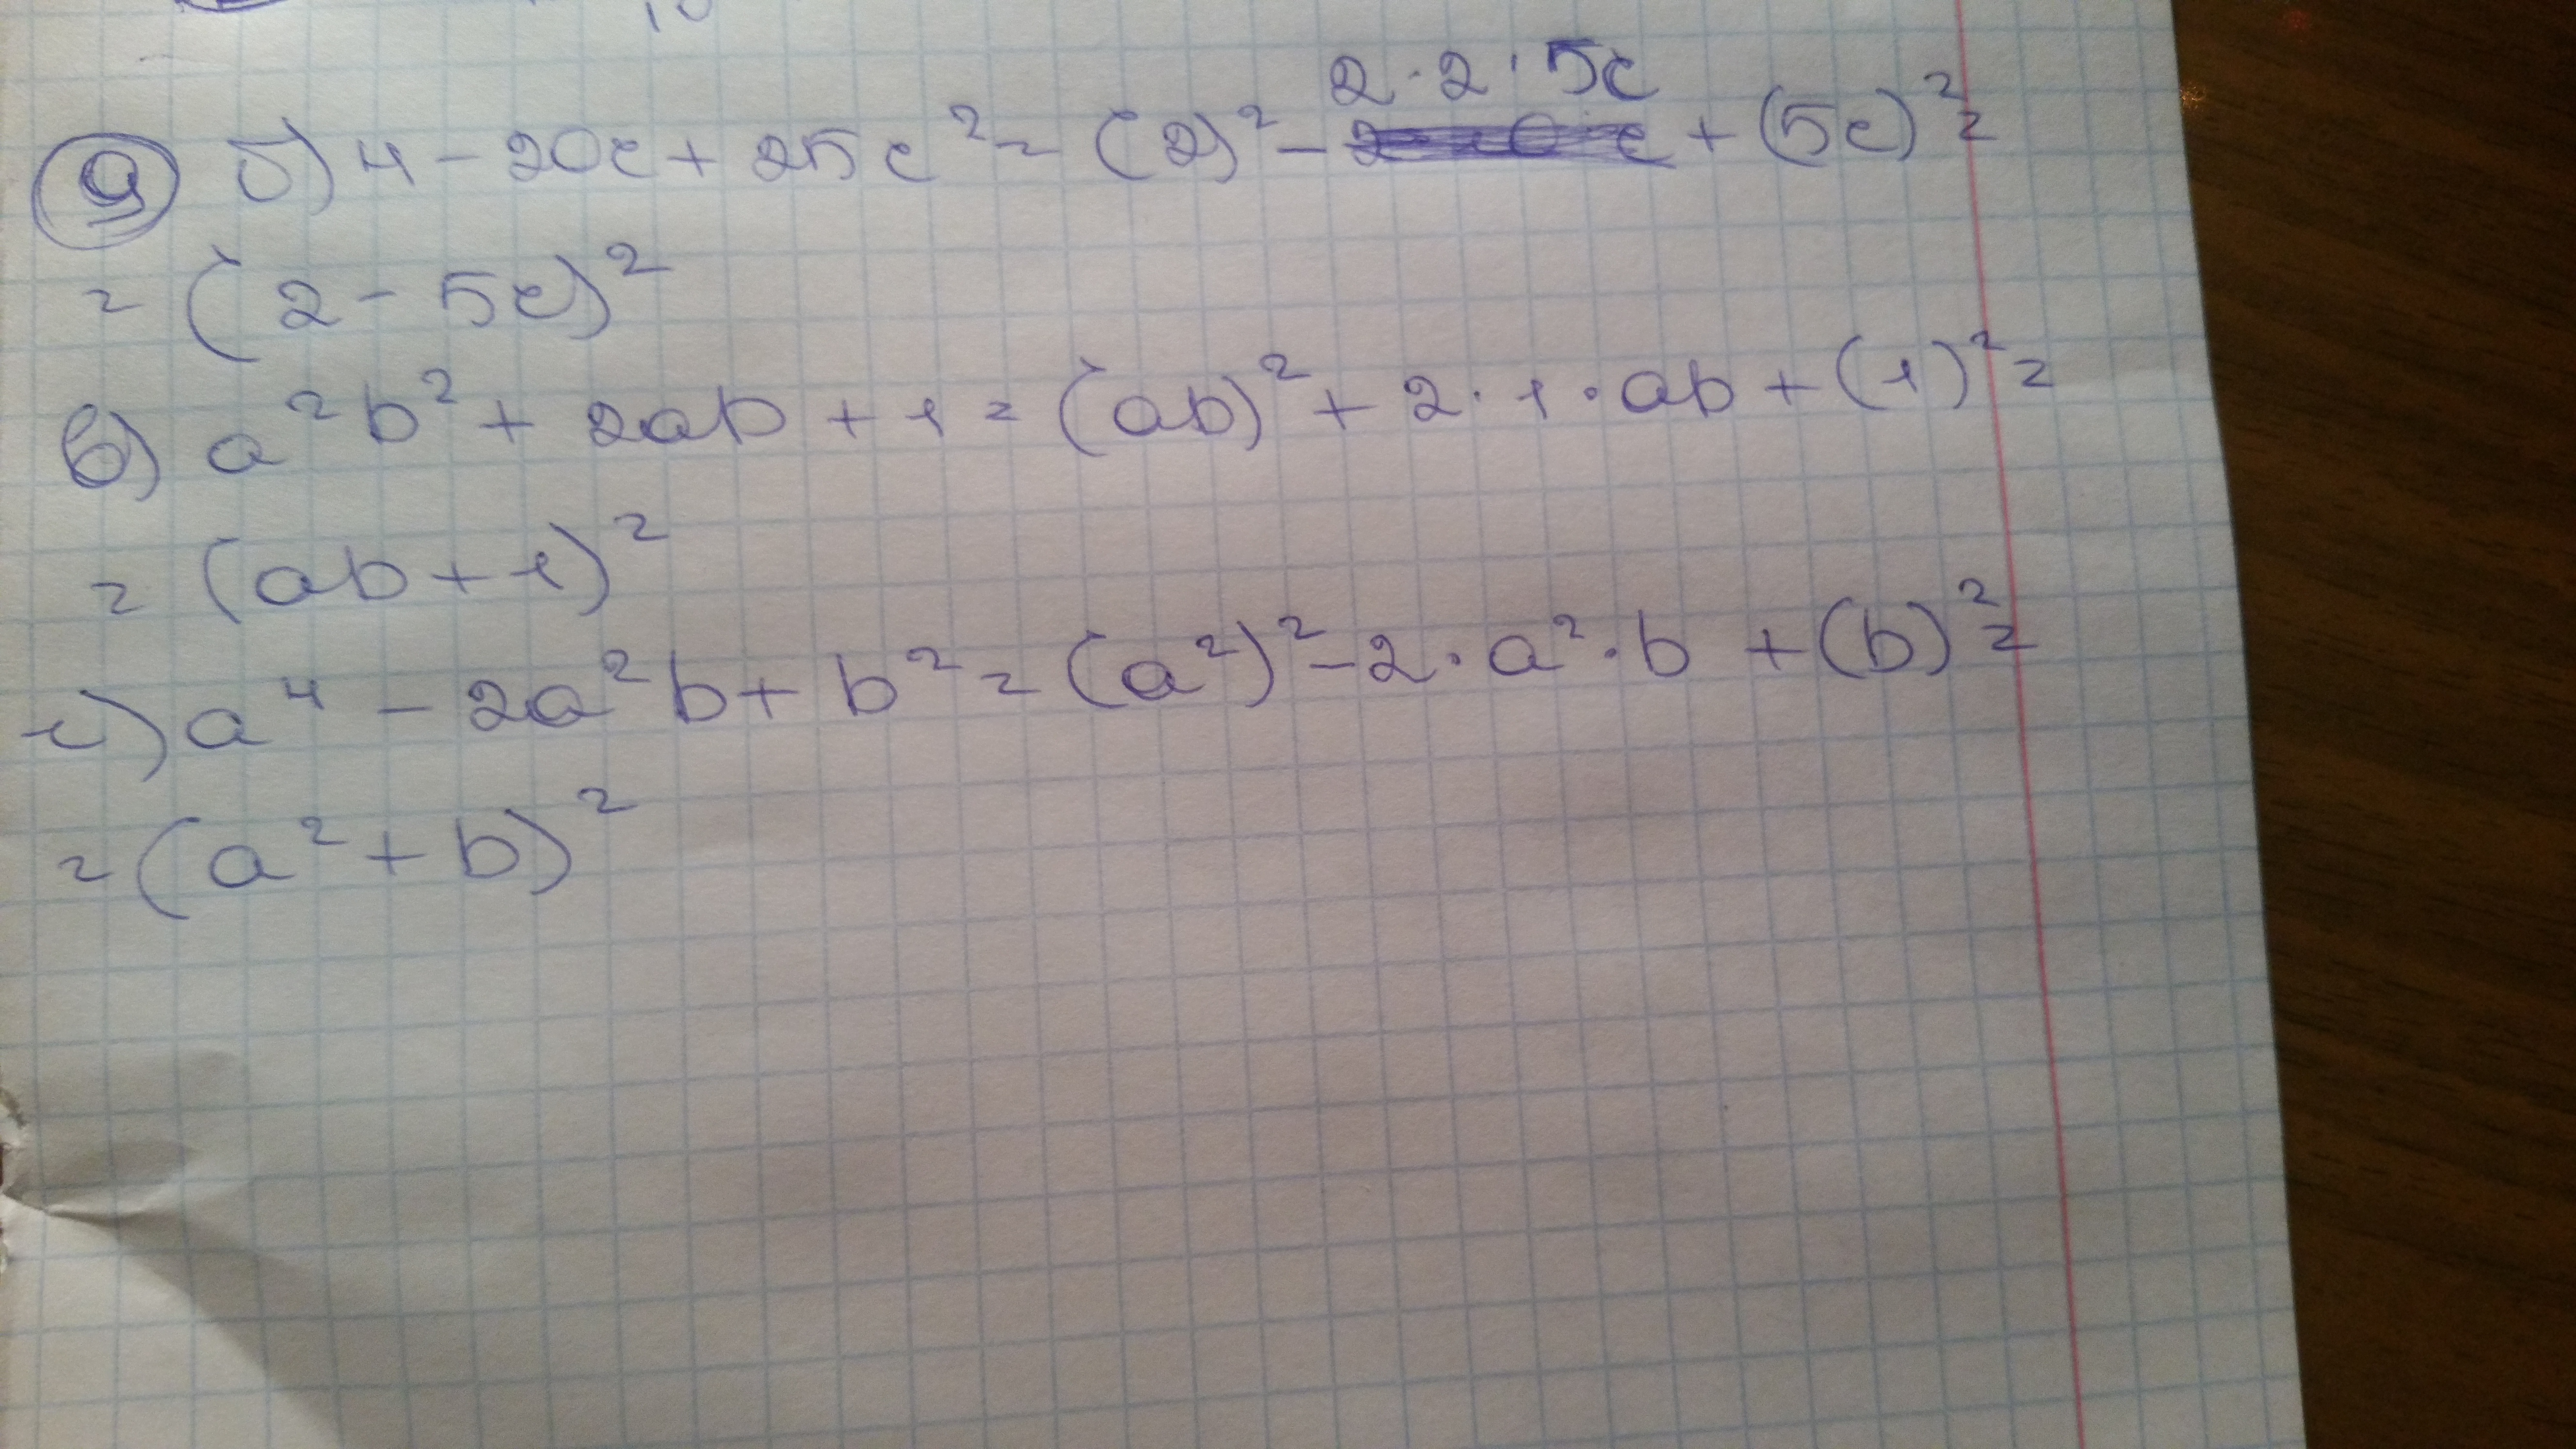 9 б) 4 - 20c + 25c² = (2)² - 2·2·5c + (5c)² =
= (2 - 5c)²
в) a²b² + 2ab + 1 = (ab)² + 2·1·ab + (1)² =
= (ab + 1)²
г) a⁴ - 2a²b + b² = (a²)² - 2·a²·b + (b)² =
= (a² + b)²